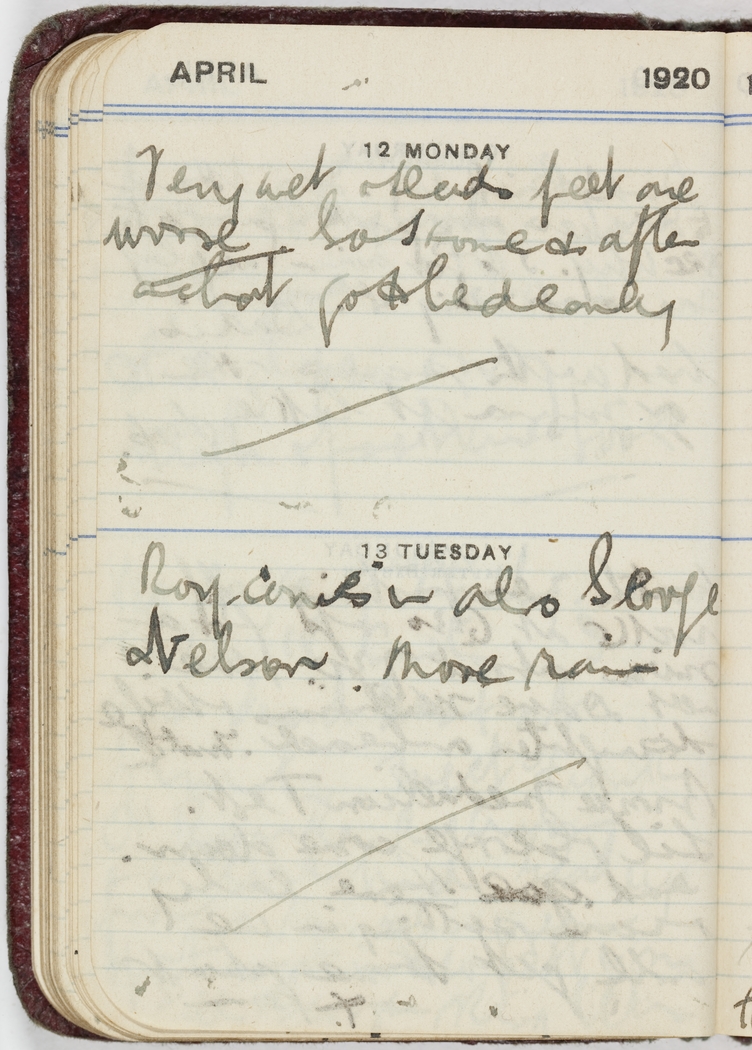 APRIL 1920
12 MONDAY
Very wet feet are
worse. So I after
a got to bed early
13 TUESDAY
Roy in also George
Nelson. More rain